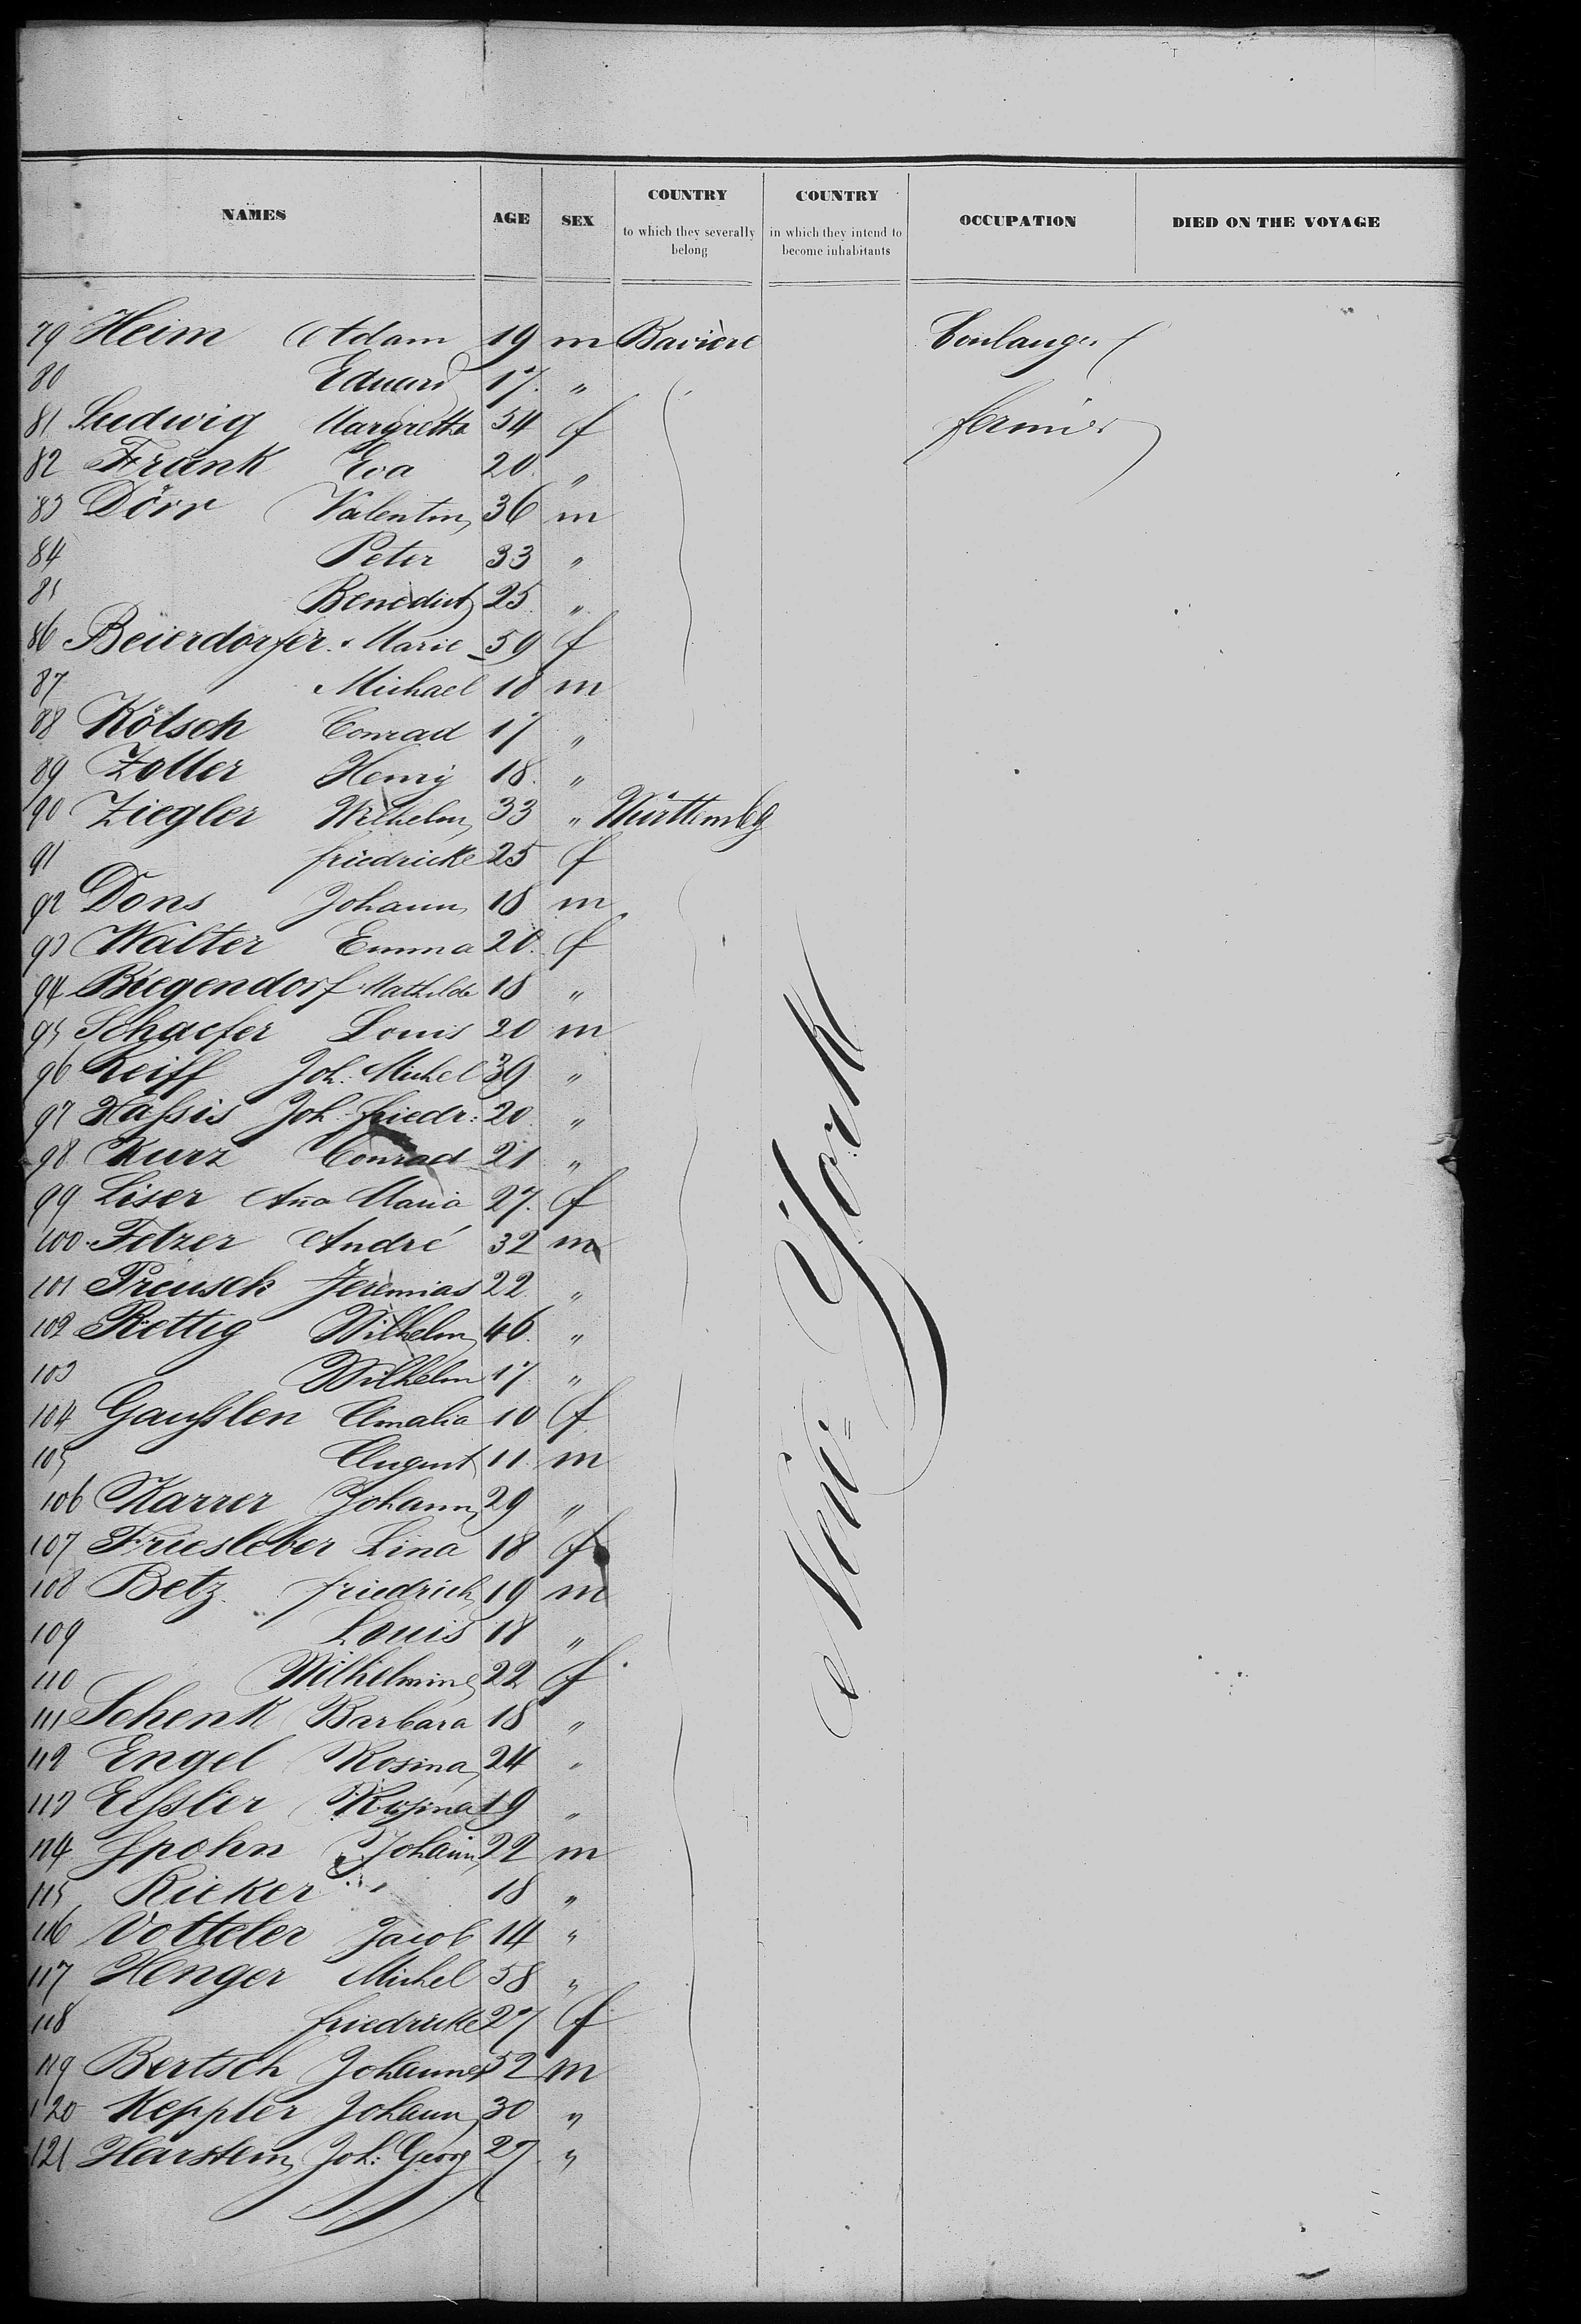 NAMES AGE SEX COUNTRY to which they severally belong COUNTRY in which they intend to become inhabitants OCCUPATION DIED ON THE VOYAGE
79 Heim Adam 19 m Bavière boulanger
80 Eduard 17 "
81 Ludwig Margretha 54 f fermier
82 Frank Eva 20 "
83 Dörr Valentin 36 m
84 Peter 33 "
85 Benedict 25 "
86 Beierdorfer Marie 59 f
87 Michael 18 m
88 Kölsch Conrad 17 "
89 Zoller Henry 18 "
90 Ziegler Wilhelm 33 " Württembg
91 friedricke 25 f
92 Dons Johann 18 m
93 Walter Emma 20 f
94 Biegendorf Mathilde 18 "
95 Schaefer Louis 20 m
96 Reiff Joh. Michel 39 "
97 Haſsis Joh. friedr: 20 "
98 Kurz Conrad 21 "
99 Liser Aña Maria 27 f
100 Fetzer André 32 m
101 Preusch Jeremias 22 "
102 Rettig Wilhelm 46 "
103 Wilhelm 17 "
104 Gauſslen Amalia 10 f
105 August 11 m
106 Karrer Johann 29 "
107 Friesleber Lina 18 f
108 Betz friedrich 19 m
109 Louis 18 "
110 Wilhelmine 22 f
111 Schenk Barbara 18 "
112 Engel Rosina 24 "
113 Eiſsler Rosina 19 "
114 Spohn Johann 22 m
115 Rieker " 18 "
116 Votteler Jacob 14 "
117 Henger Michel 58 "
118 friedricke 27 f
119 Bertsch Johannes 52 m
120 Keppler Johann 30 "
121 Harstein Joh: Georg 27 "
New=York